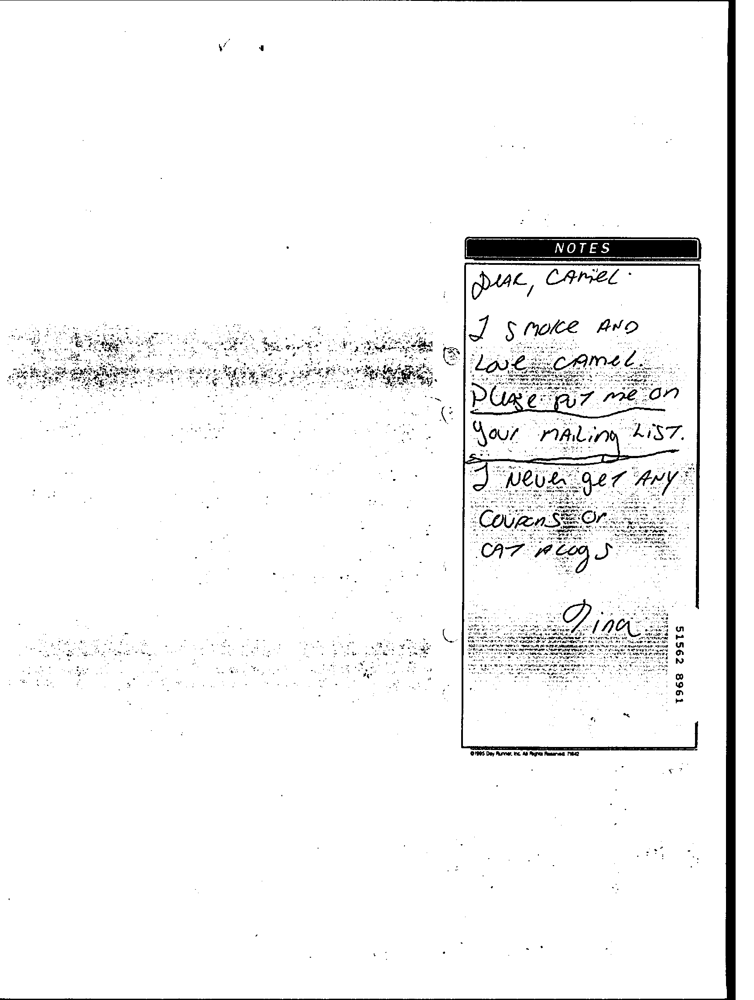 NOTES
DEAR, CAMEL.
I SMOKE AND
LOVE CAMEL.
PLEASE PUT ME ON
YOUR MAILING LIST.
I NEVER GET ANY
COUPENS OR
CAT ALOGS
Tina
51562 8961
©1995 Day Runner, Inc. All Rights Reserved 71642